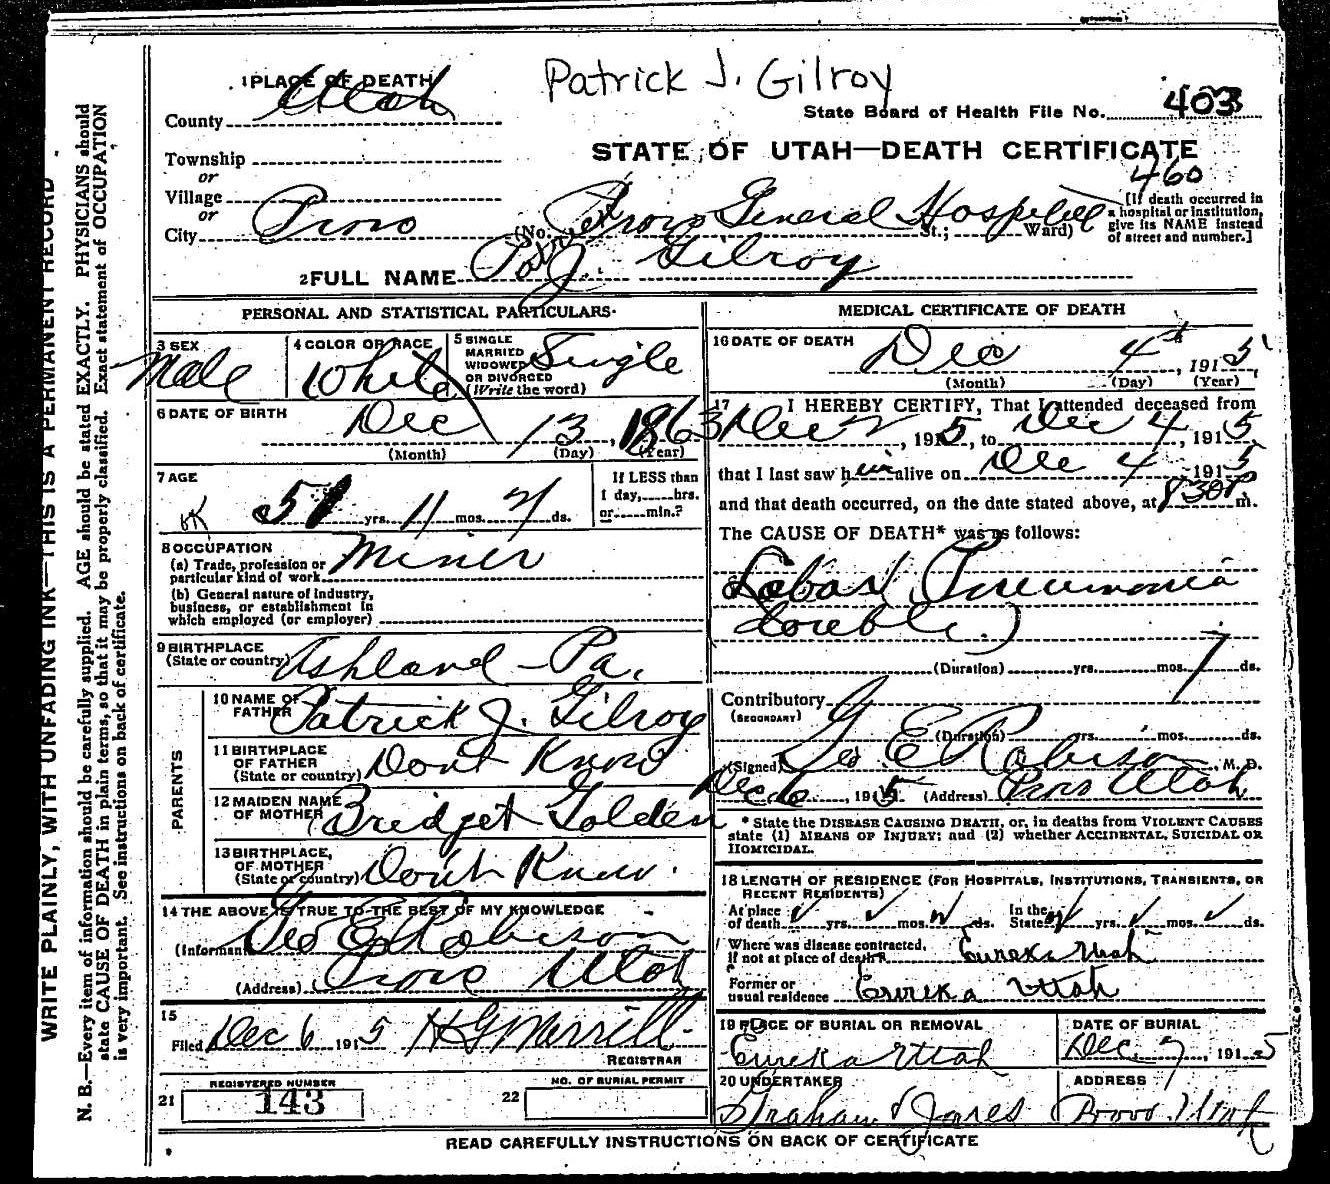 Patrick J. Gilroy
1 PLACE OF DEATH
County Utah
State Board of Health File No. 403
Township
or
Village
or
City Provo
STATE OF UTAH—DEATH CERTIFICATE
460
(No. Provo General Hospital St.; Ward)
[If death occurred in a hospital or institution, give its NAME instead of street and number.]
2 FULL NAME Patrick J. Gilroy
PERSONAL AND STATISTICAL PARTICULARS
3 SEX
Male
4 COLOR OR RACE
White
5 SINGLE MARRIED WIDOWED OR DIVORCED (Write the word)
Single
6 DATE OF BIRTH
Dec 13, 1863
(Month) (Day) (Year)
7 AGE
51 yrs. 11 mos. 21 ds.
If LESS than 1 day, hrs. or min.?
8 OCCUPATION
(a) Trade, profession or particular kind of work Miner
(b) General nature of industry, business, or establishment in which employed (or employer)
9 BIRTHPLACE
(State or country) Ashland - Pa.
PARENTS
10 NAME OF FATHER Patrick J. Gilroy
11 BIRTHPLACE OF FATHER (State or country) Dont Know
12 MAIDEN NAME OF MOTHER Bridget Golden
13 BIRTHPLACE, OF MOTHER (State or country) Don't Know.
14 THE ABOVE IS TRUE TO THE BEST OF MY KNOWLEDGE
(Informant) Geo E Robison
(Address) Provo Utah
15
Filed Dec 6 1915 H G Merrill
REGISTRAR
21 REGISTERED NUMBER
143
22 NO. OF BURIAL PERMIT
MEDICAL CERTIFICATE OF DEATH
16 DATE OF DEATH
Dec 4th, 1915
(Month) (Day) (Year)
17 I HEREBY CERTIFY, That I attended deceased from
Dec 2, 1915, to Dec 4, 1915
that I last saw him alive on Dec 4 1915
and that death occurred, on the date stated above, at 830P m.
The CAUSE OF DEATH* was as follows:
Lobar Pneumonia
(double.)
(Duration) yrs. mos. 7 ds.
Contributory
(SECONDARY)
(Duration) yrs. mos. ds.
(Signed) Geo E Robison, M. D.
Dec 6, 1915 (Address) Provo Utah
* State the DISEASE CAUSING DEATH, or, in deaths from VIOLENT CAUSES
state (1) MEANS OF INJURY; and (2) whether ACCIDENTAL, SUICIDAL OR
HOMICIDAL.
18 LENGTH OF RESIDENCE (FOR HOSPITALS, INSTITUTIONS, TRANSIENTS, OR
RECENT RESIDENTS)
At place of death yrs. mos. ds. In the State yrs. mos. ds.
Where was disease contracted, If not at place of death? Eureka Utah
Former or usual residence Eureka Utah
19 PLACE OF BURIAL OR REMOVAL
Eureka Utah
DATE OF BURIAL
Dec. 7, 1915
20 UNDERTAKER
Graham & Jones
ADDRESS
Provo Utah
READ CAREFULLY INSTRUCTIONS ON BACK OF CERTIFICATE
WRITE PLAINLY, WITH UNFADING INK—THIS IS A PERMANENT RECORD
N. B.—Every item of information should be carefully supplied. AGE should be stated EXACTLY. PHYSICIANS should
state CAUSE OF DEATH in plain terms, so that it may be properly classified. Exact statement of OCCUPATION
is very important. See instructions on back of certificate.